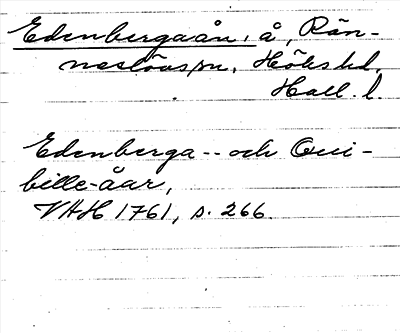 Edenbergaån, å, Rän-
neslövs sn, Höks hd,
Hall. l.
Edenberga -- och Qui-
bille-åar,
VAH 1761, s. 266.